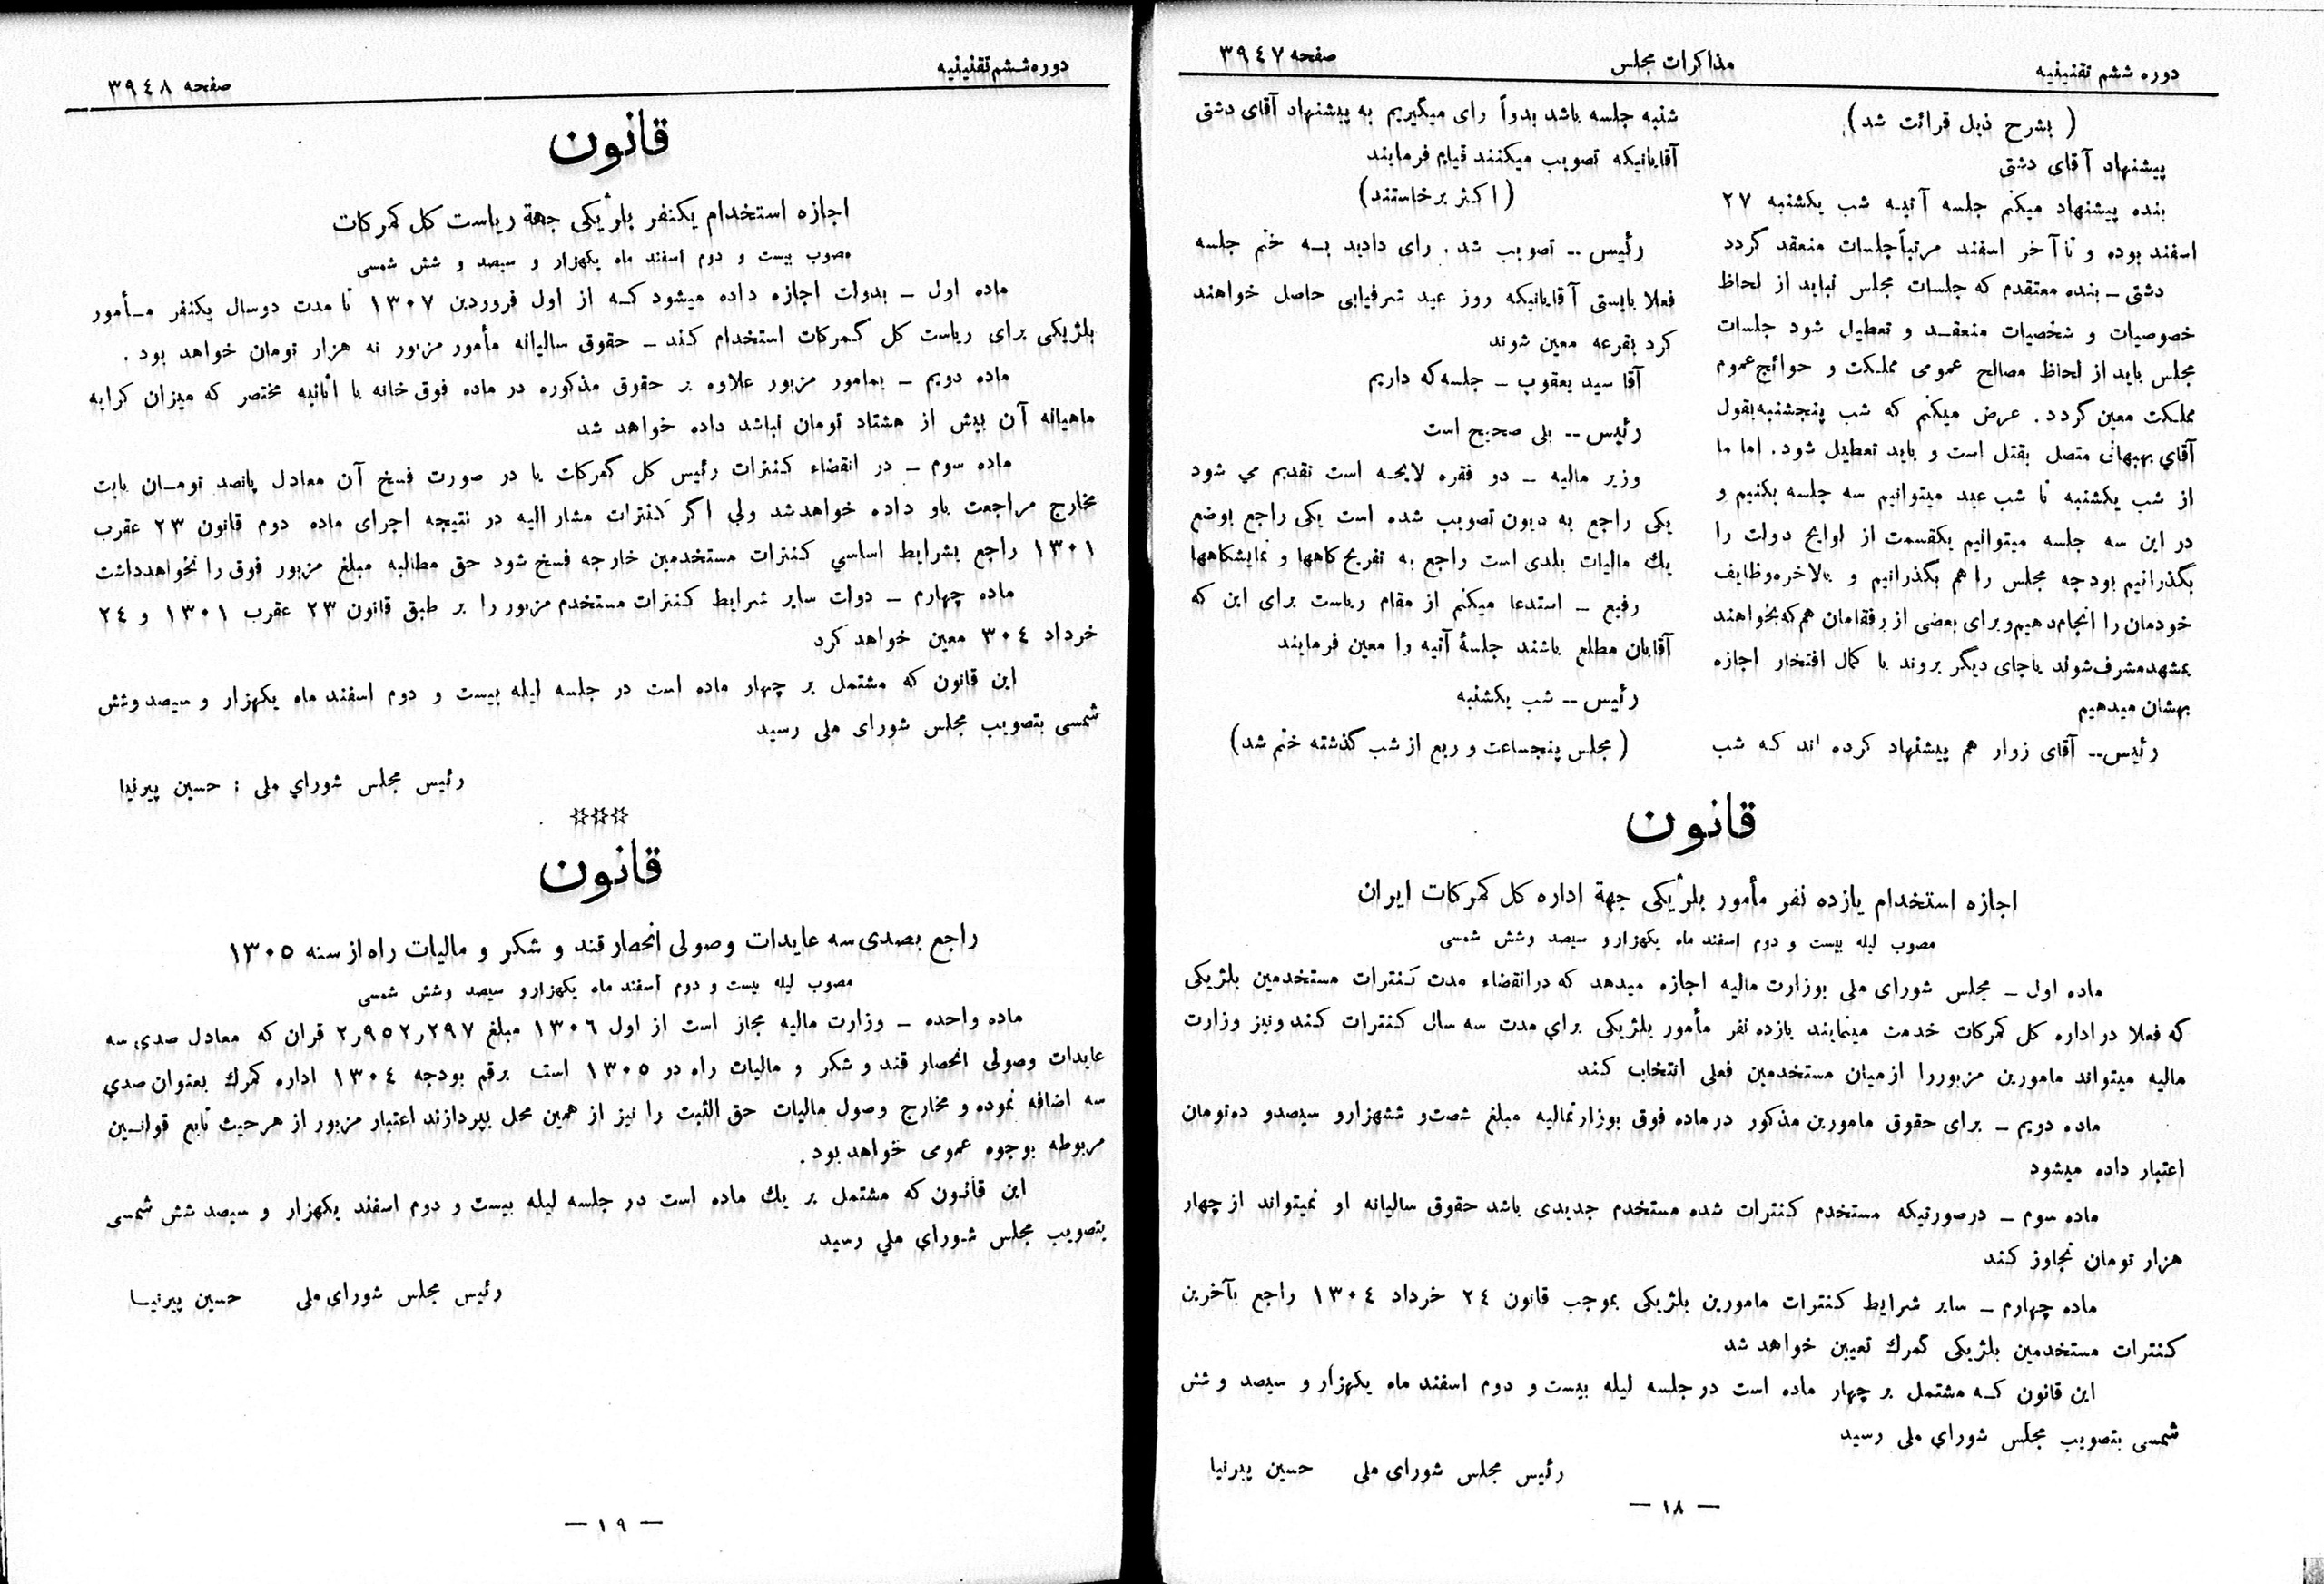 دوره ششم تقنینیه
مذاکرات مجلس
صفحه ۳۹٤۷
( بشرح ذیل قرائت شد )
پیشنهاد آقای دشتی
بنده پیشنهاد میکنم جلسه آتیه شب یکشنبه ۲۷
اسفند بوده و تا آخر اسفند مرتباً جلسات منعقد گردد
دشتی ــ بنده معتقدم که جلسات مجلس نباید از لحاظ
خصوصیات و شخصیات منعقد و تعطیل شود جلسات
مجلس باید از لحاظ مصالح عمومی مملکت و حوائج عموم
مملکت معین گردد . عرض میکنم که شب پنجشنبه بقول
آقاي بهبهانی متصل بقتل است و باید تعطیل شود . اما ما
از شب یکشنبه تا شب عید میتوانیم سه جلسه بکنیم و
در این سه جلسه میتوانیم یکقسمت از لوایح دولت را
بگذرانیم بودجه مجلس را هم بگذرانیم و بالاخره وظایف
خودمان را انجام دهیم و برای بعضی از رفقامان هم که بخواهند
بمشهد مشرف شوند یا جای دیگر بروند با کمال افتخار اجازه
بهشان میدهیم
رئیس ــ آقای زوار هم پیشنهاد کرده اند که شب
شنبه جلسه باشد بدواً رای میگیریم به پیشنهاد آقای دشتی
آقایانیکه تصویب میکنند قیام فرمایند
( اکثر برخاستند )
رئیس ــ تصویب شد . رای دادید به ختم جلسه
فعلا بایستی آقایانیکه روز عید شرفیابی حاصل خواهند
کرد بقرعه معین شوند
آقا سید یعقوب ــ جلسه که داریم
رئیس ــ بلی صحیح است
وزیر مالیه ــ دو فقره لایحه است تقدیم مي شود
یکی راجع به دیون تصویب شده است یکی راجع بوضع
یك مالیات بلدی است راجع به تفریح کاهها و نمایشکاهها
رفیع ــ استدعا میکنم از مقام ریاست برای این که
آقایان مطلع باشند جلسهٔ آتیه را معین فرمایند
رئیس ــ شب یکشنبه
( مجلس پنجساعت و ربع از شب گذشته ختم شد )
قانون
اجازه استخدام یازده نفر مأمور بلژیکی جهة اداره کل گمرکات ایران
مصوب لیله بیست و دوم اسفند ماه یکهزار و سیصد وشش شمسی
ماده اول ــ مجلس شورای ملی بوزارت مالیه اجازه میدهد که در انقضاء مدت کنترات مستخدمین بلژیکی
که فعلا در اداره کل گمرکات خدمت مینمایند یازده نفر مأمور بلژیکی براي مدت سه سال کنترات کند و نیز وزارت
مالیه میتواند مامورین مزبور را از میان مستخدمین فعلی انتخاب کند
ماده دویم ــ برای حقوق مامورین مذکور در ماده فوق بوزارتمالیه مبلغ شصت و ششهزار و سیصد و ده تومان
اعتبار داده میشود
ماده سوم ــ درصورتیکه مستخدم کنترات شده مستخدم جدیدی باشد حقوق سالیانه او نمیتواند از چهار
هزار تومان تجاوز کند
ماده چهارم ــ سایر شرایط کنترات مامورین بلژیکی بموجب قانون ۲٤ خرداد ۱۳۰٤ راجع بآخرین
کنترات مستخدمین بلژیکی گمرك تعیین خواهد شد
این قانون که مشتمل بر چهار ماده است در جلسه لیله بیست و دوم اسفند ماه یکهزار و سیصد و شش
شمسی بتصویب مجلس شورای ملی رسید
رئیس مجلس شورای ملی حسین پیرنیا
— ۱۸ —
دوره ششم تقنینیه
صفحه ۳۹٤۸
قانون
اجازه استخدام یکنفر بلژیکی جهة ریاست کل گمرکات
مصوب بیست و دوم اسفند ماه یکهزار و سیصد و شش شمسی
ماده اول ــ بدولت اجازه داده میشود که از اول فروردین ۱۳۰۷ تا مدت دوسال یکنفر مأمور
بلژیکی برای ریاست کل گمرکات استخدام کند ــ حقوق سالیانه مأمور مزبور نه هزار تومان خواهد بود .
ماده دویم ــ بمامور مزبور علاوه بر حقوق مذکوره در ماده فوق خانه با اثاثیه مختصر که میزان کرایه
ماهیانه آن بیش از هشتاد تومان نباشد داده خواهد شد
ماده سوم ــ در انقضاء کنترات رئیس کل گمرکات یا در صورت فسخ آن معادل پانصد تومان بابت
مخارج مراجعت باو داده خواهدشد ولی اگر کنترات مشار الیه در نتیجه اجرای ماده دوم قانون ۲۳ عقرب
۱۳۰۱ راجع بشرایط اساسي کنترات مستخدمین خارجه فسخ شود حق مطالبه مبلغ مزبور فوق را نخواهدداشت
ماده چهارم ــ دولت سایر شرایط کنترات مستخدم مزبور را بر طبق قانون ۲۳ عقرب ۱۳۰۱ و ۲٤
خرداد ۳۰٤ معین خواهد کرد
این قانون که مشتمل بر چهار ماده است در جلسه لیله بیست و دوم اسفند ماه یکهزار و سیصد وشش
شمسی بتصویب مجلس شورای ملی رسید
رئیس مجلس شوراي ملی : حسین پیرنیا
***
قانون
راجع بصدی سه عایدات وصولی انحصار قند و شکر و مالیات راه از سنه ۱۳۰٥
مصوب لیله بیست و دوم اسفند ماه یکهزارو سیصد وشش شمسی
ماده واحده ــ وزارت مالیه مجاز است از اول ۱۳۰٦ مبلغ ۲ر۹٥۲ر۲۹۷ قران که معادل صدی سه
عایدات وصولی انحصار قند و شکر و مالیات راه در ۱۳۰٥ است برقم بودجه ۱۳۰٤ اداره گمرك بعنوان صدي
سه اضافه نموده و مخارج وصول مالیات حق الثبت را نیز از همین محل بپردازند اعتبار مزبور از هر حیث تابع قوانین
مربوطه بوجوه عمومی خواهد بود .
این قانون که مشتمل بر یك ماده است در جلسه لیله بیست و دوم اسفند یکهزار و سیصد شش شمسی
بتصویب مجلس شوراي ملي رسید
رئیس مجلس شورای ملی حسین پیرنیا
— ۱۹ —